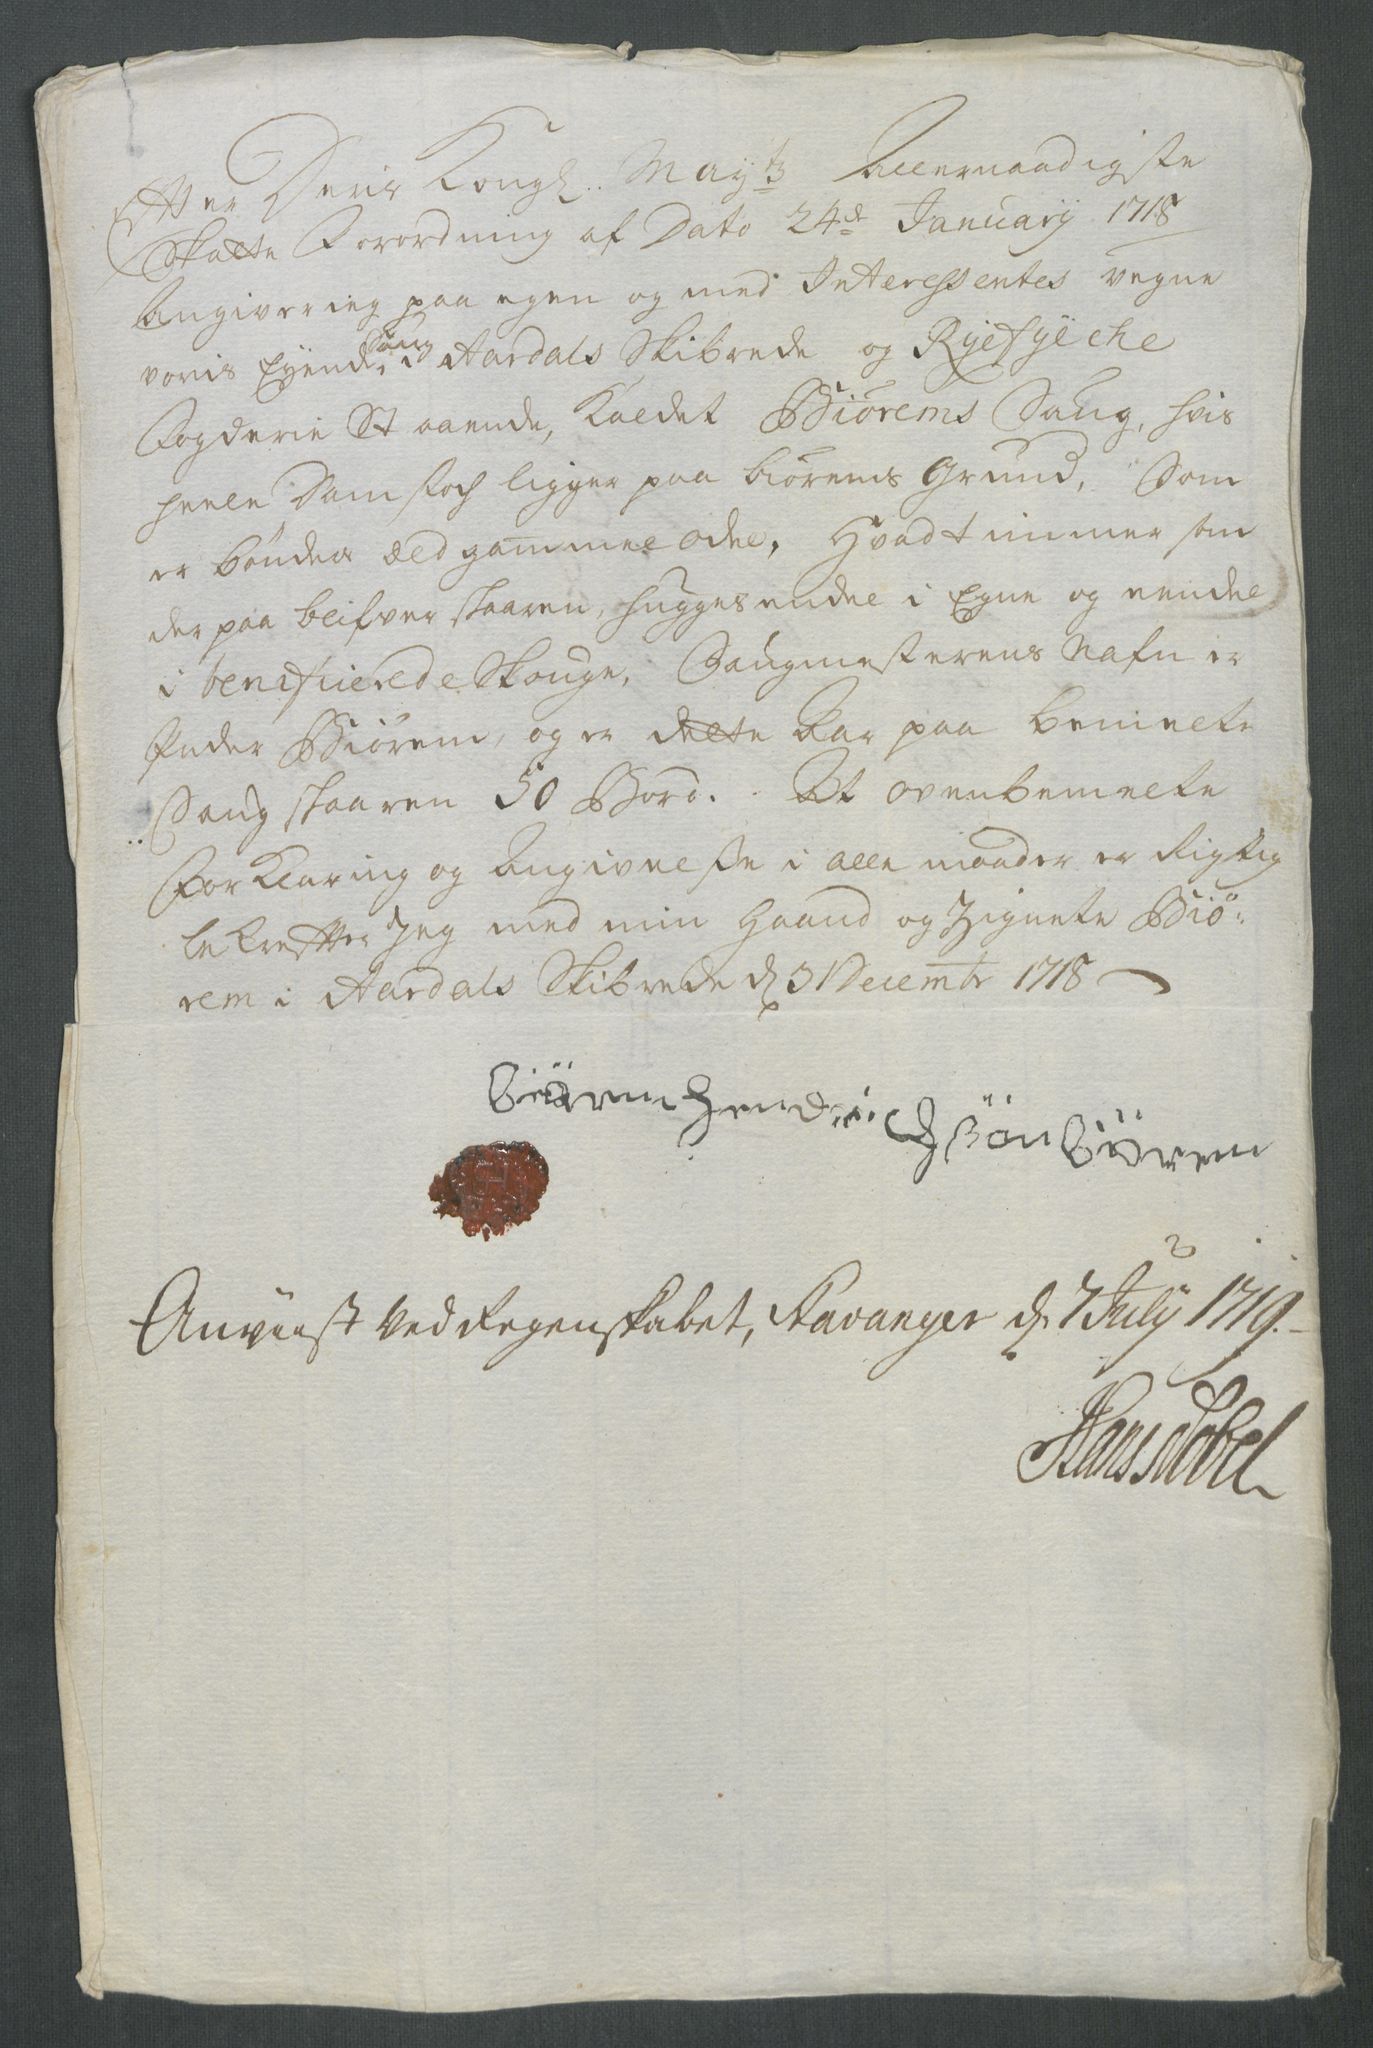 Efter Deris Kongl. Mayts Allernaadigste
Skatte Forordning af Dato 24de January 1718
Angiver ieg paa egen og med Interessentes vegne
voris Eyende Saug i Aardals Skibrede og Ryefylche
Fogderie Staaende, kaldet Biörems Saug, hvis
heele Damstoch ligger paa biörems Grund, Som
er bönders ældgammel odel, Hvad timmer som
der paa blifver skaaren, hugges endel i Egne og eendel
i benificerede Skouge, Saugmesterens Nafn er
Peder Biörem, og er dette Aar paa bemelte
Saug skaaren 50 Bord. At ovenbemelte
Forklaring og Angivelse i alle maader er Rigtig
bekrefter Jeg med min Haand og Zignete Biö-
rem i Aardals Skibrede d 3 Decembr 1718
Biörem
Anviist ved Regenskabet, Stavanger d. 7 July 1719.
Hans Nobel